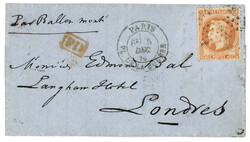 Par Ballon monté
PARIS
PD
Monsieur Edmond Sal
Langham Hotel
Londres